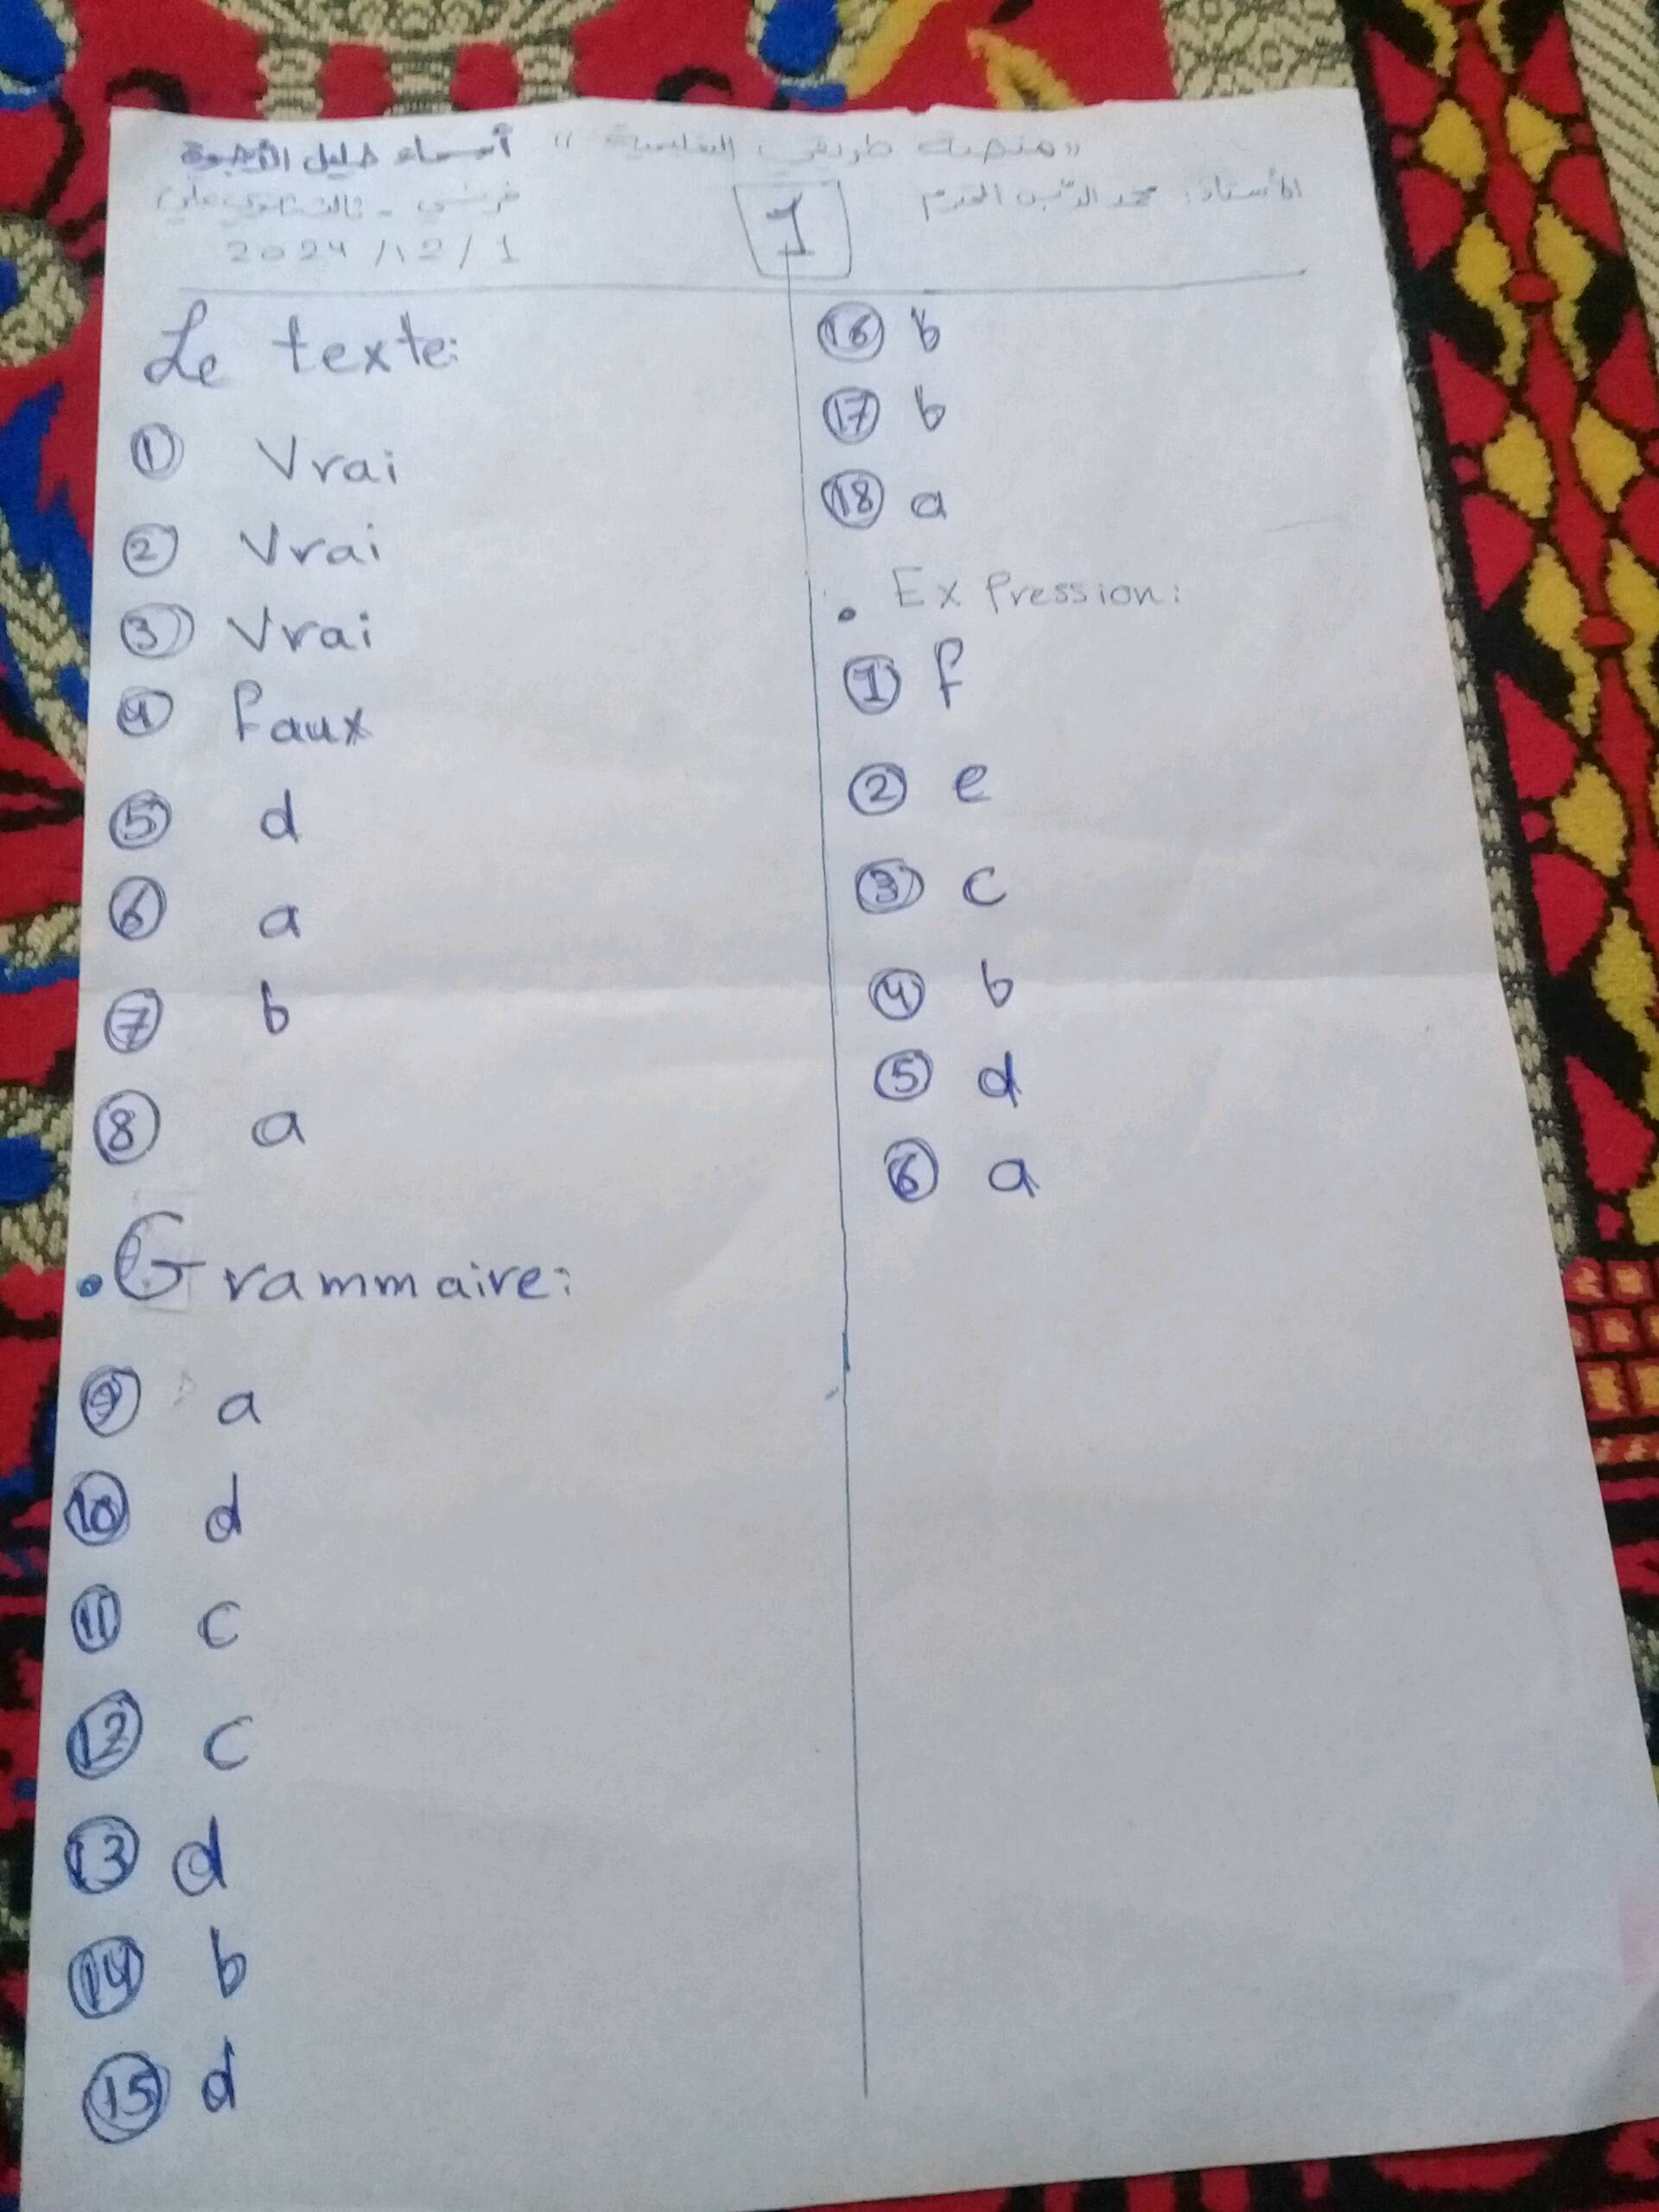 أسماء خليل الأجوة
"منصة طريقي التعليمية"
فرنسي - ثالث ثانوي علمي
الأستاذ: محمد المحترم
1/12/2024
1
Le texte:
① Vrai
② Vrai
③ Vrai
④ Faux
⑤ d
⑥ a
⑦ b
⑧ a
• Grammaire:
⑨ a
⑩ d
⑪ c
⑫ c
⑬ d
⑭ b
⑮ d
⑯ b
⑰ b
⑱ a
• Expression:
① f
② e
③ c
④ b
⑤ d
⑥ a